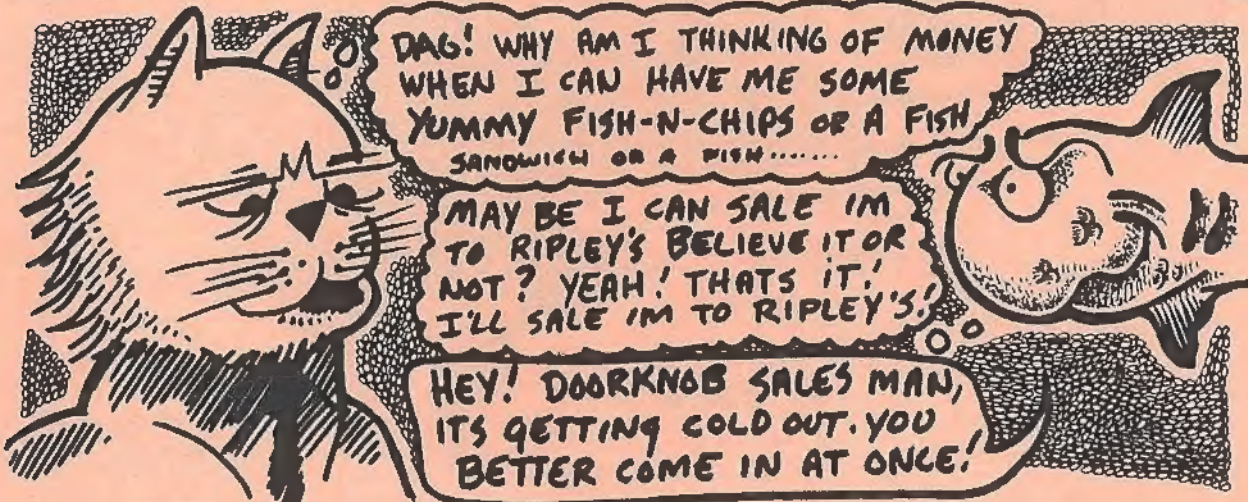 DAG! WHY AM I THINKING OF MONEY
WHEN I CAN HAVE ME SOME
YUMMY FISH-N-CHIPS OR A FISH
SANDWICH OR A FISH.......
MAY BE I CAN SALE IM
TO RIPLEY'S BELIEVE IT OR
NOT? YEAH! THATS IT!
I'LL SALE IM TO RIPLEY'S!
HEY! DOORKNOB SALES MAN,
ITS GETTING COLD OUT. YOU
BETTER COME IN AT ONCE!